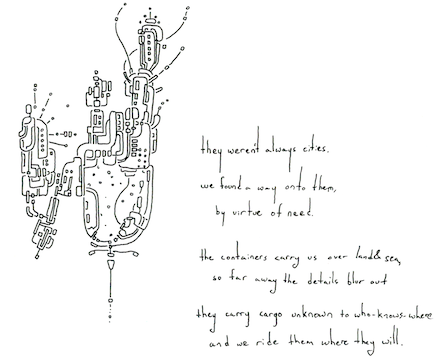 they weren't always cities.
we found a way onto them,
by virtue of need.
the containers carry us over land & sea,
so far away the details blur out
they carry cargo unknown to who-knows-where
and we ride them where they will.